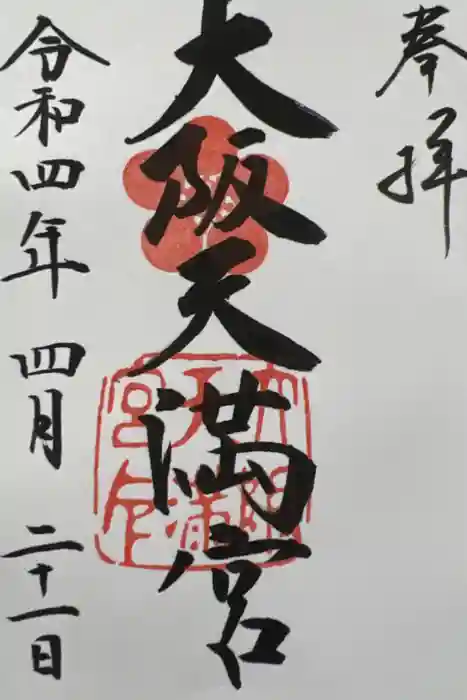 奉拝
大阪天満宮
大阪天満宮印
令和四年 四月 二十一日